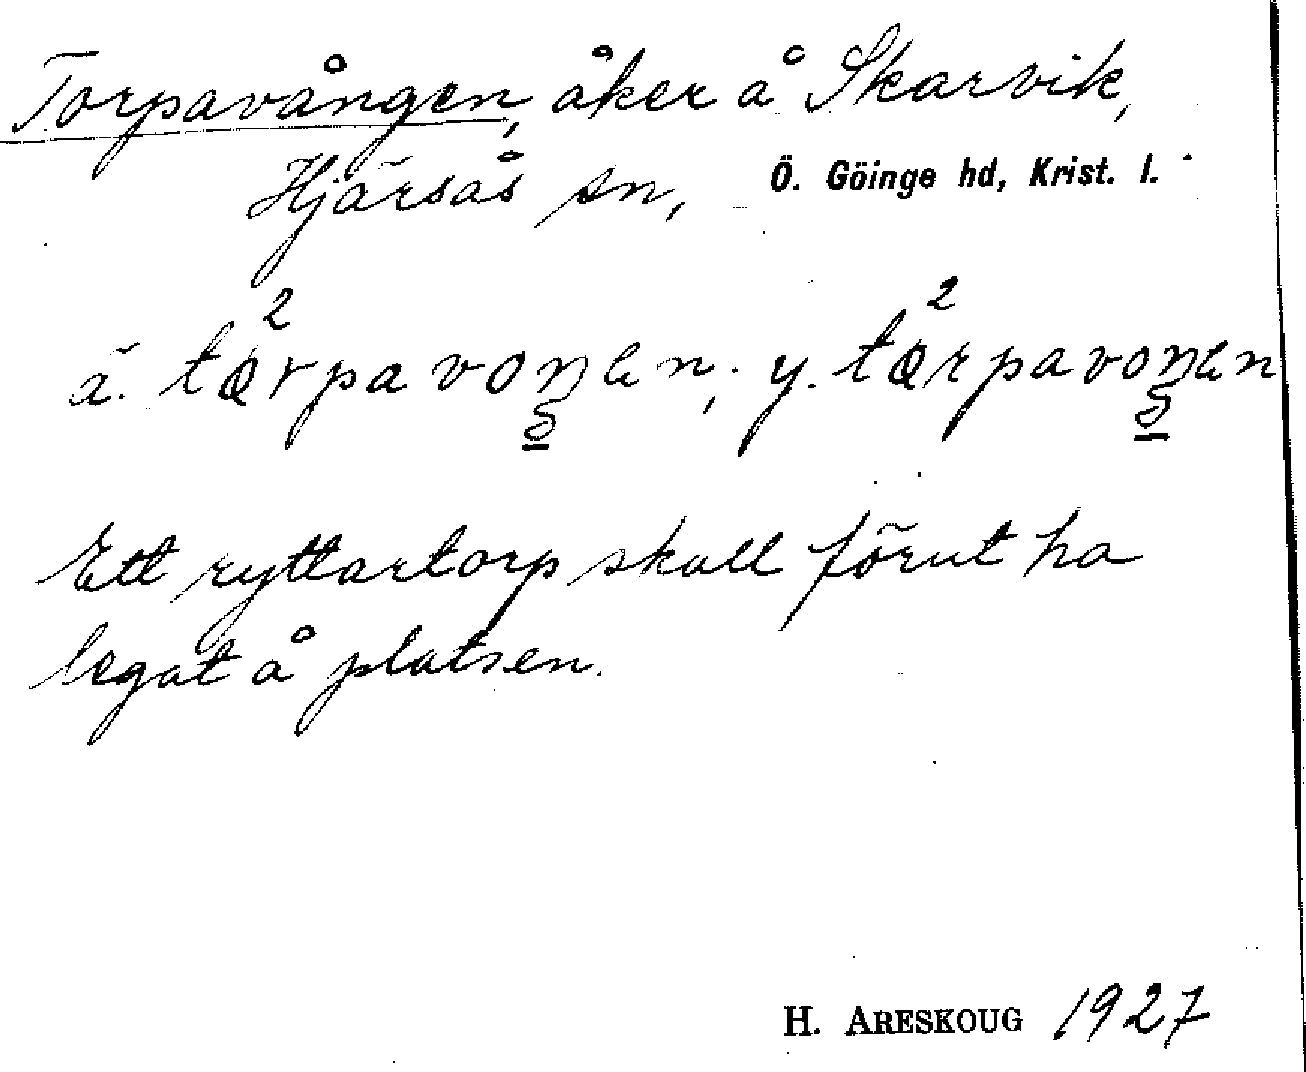 Torpavången, åker å Skarvik,
Hjärsås sn, Ö. Göinge hd, Krist. l.
ä. tɵ²rpavoŋen; y. tɵ²rpavoŋen
Ett ryttartorp skall förut ha
legat å platsen.
H. ARESKOUG 1927